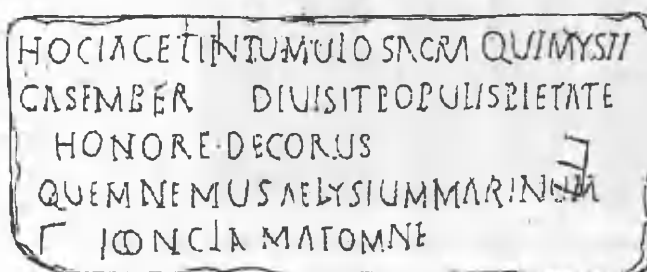 HOCIACETINTUMULOSACRA QUIMYSTI
CASEMBER DIUISITPOPULISPIETATE
HONORE·DECORUS
QUEMNEMUSAELYSIUMMARINUM